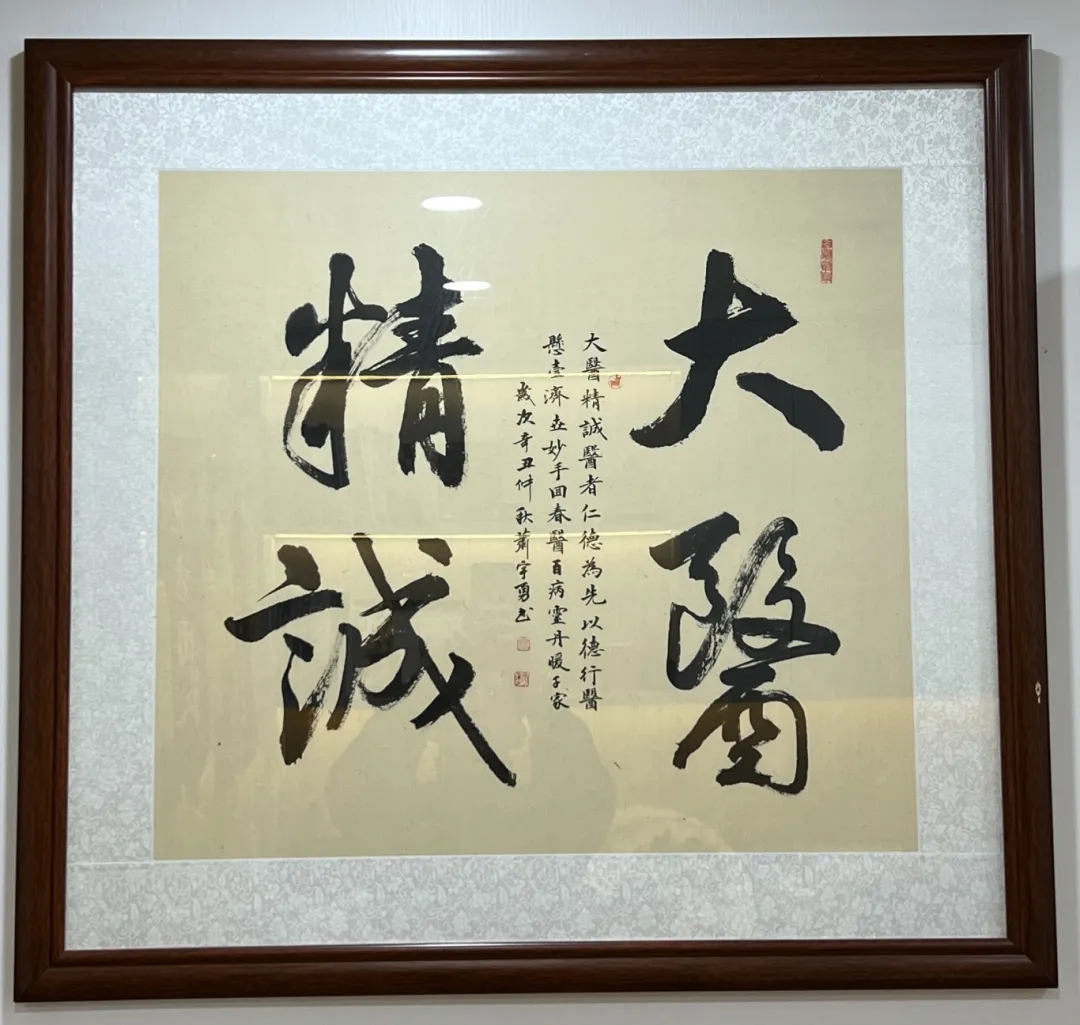 大醫
精誠
大醫精誠醫者仁德為先以德行醫
懸壺濟世妙手回春醫百病靈丹暖千家
歲次辛丑仲秋蕭宇勇书